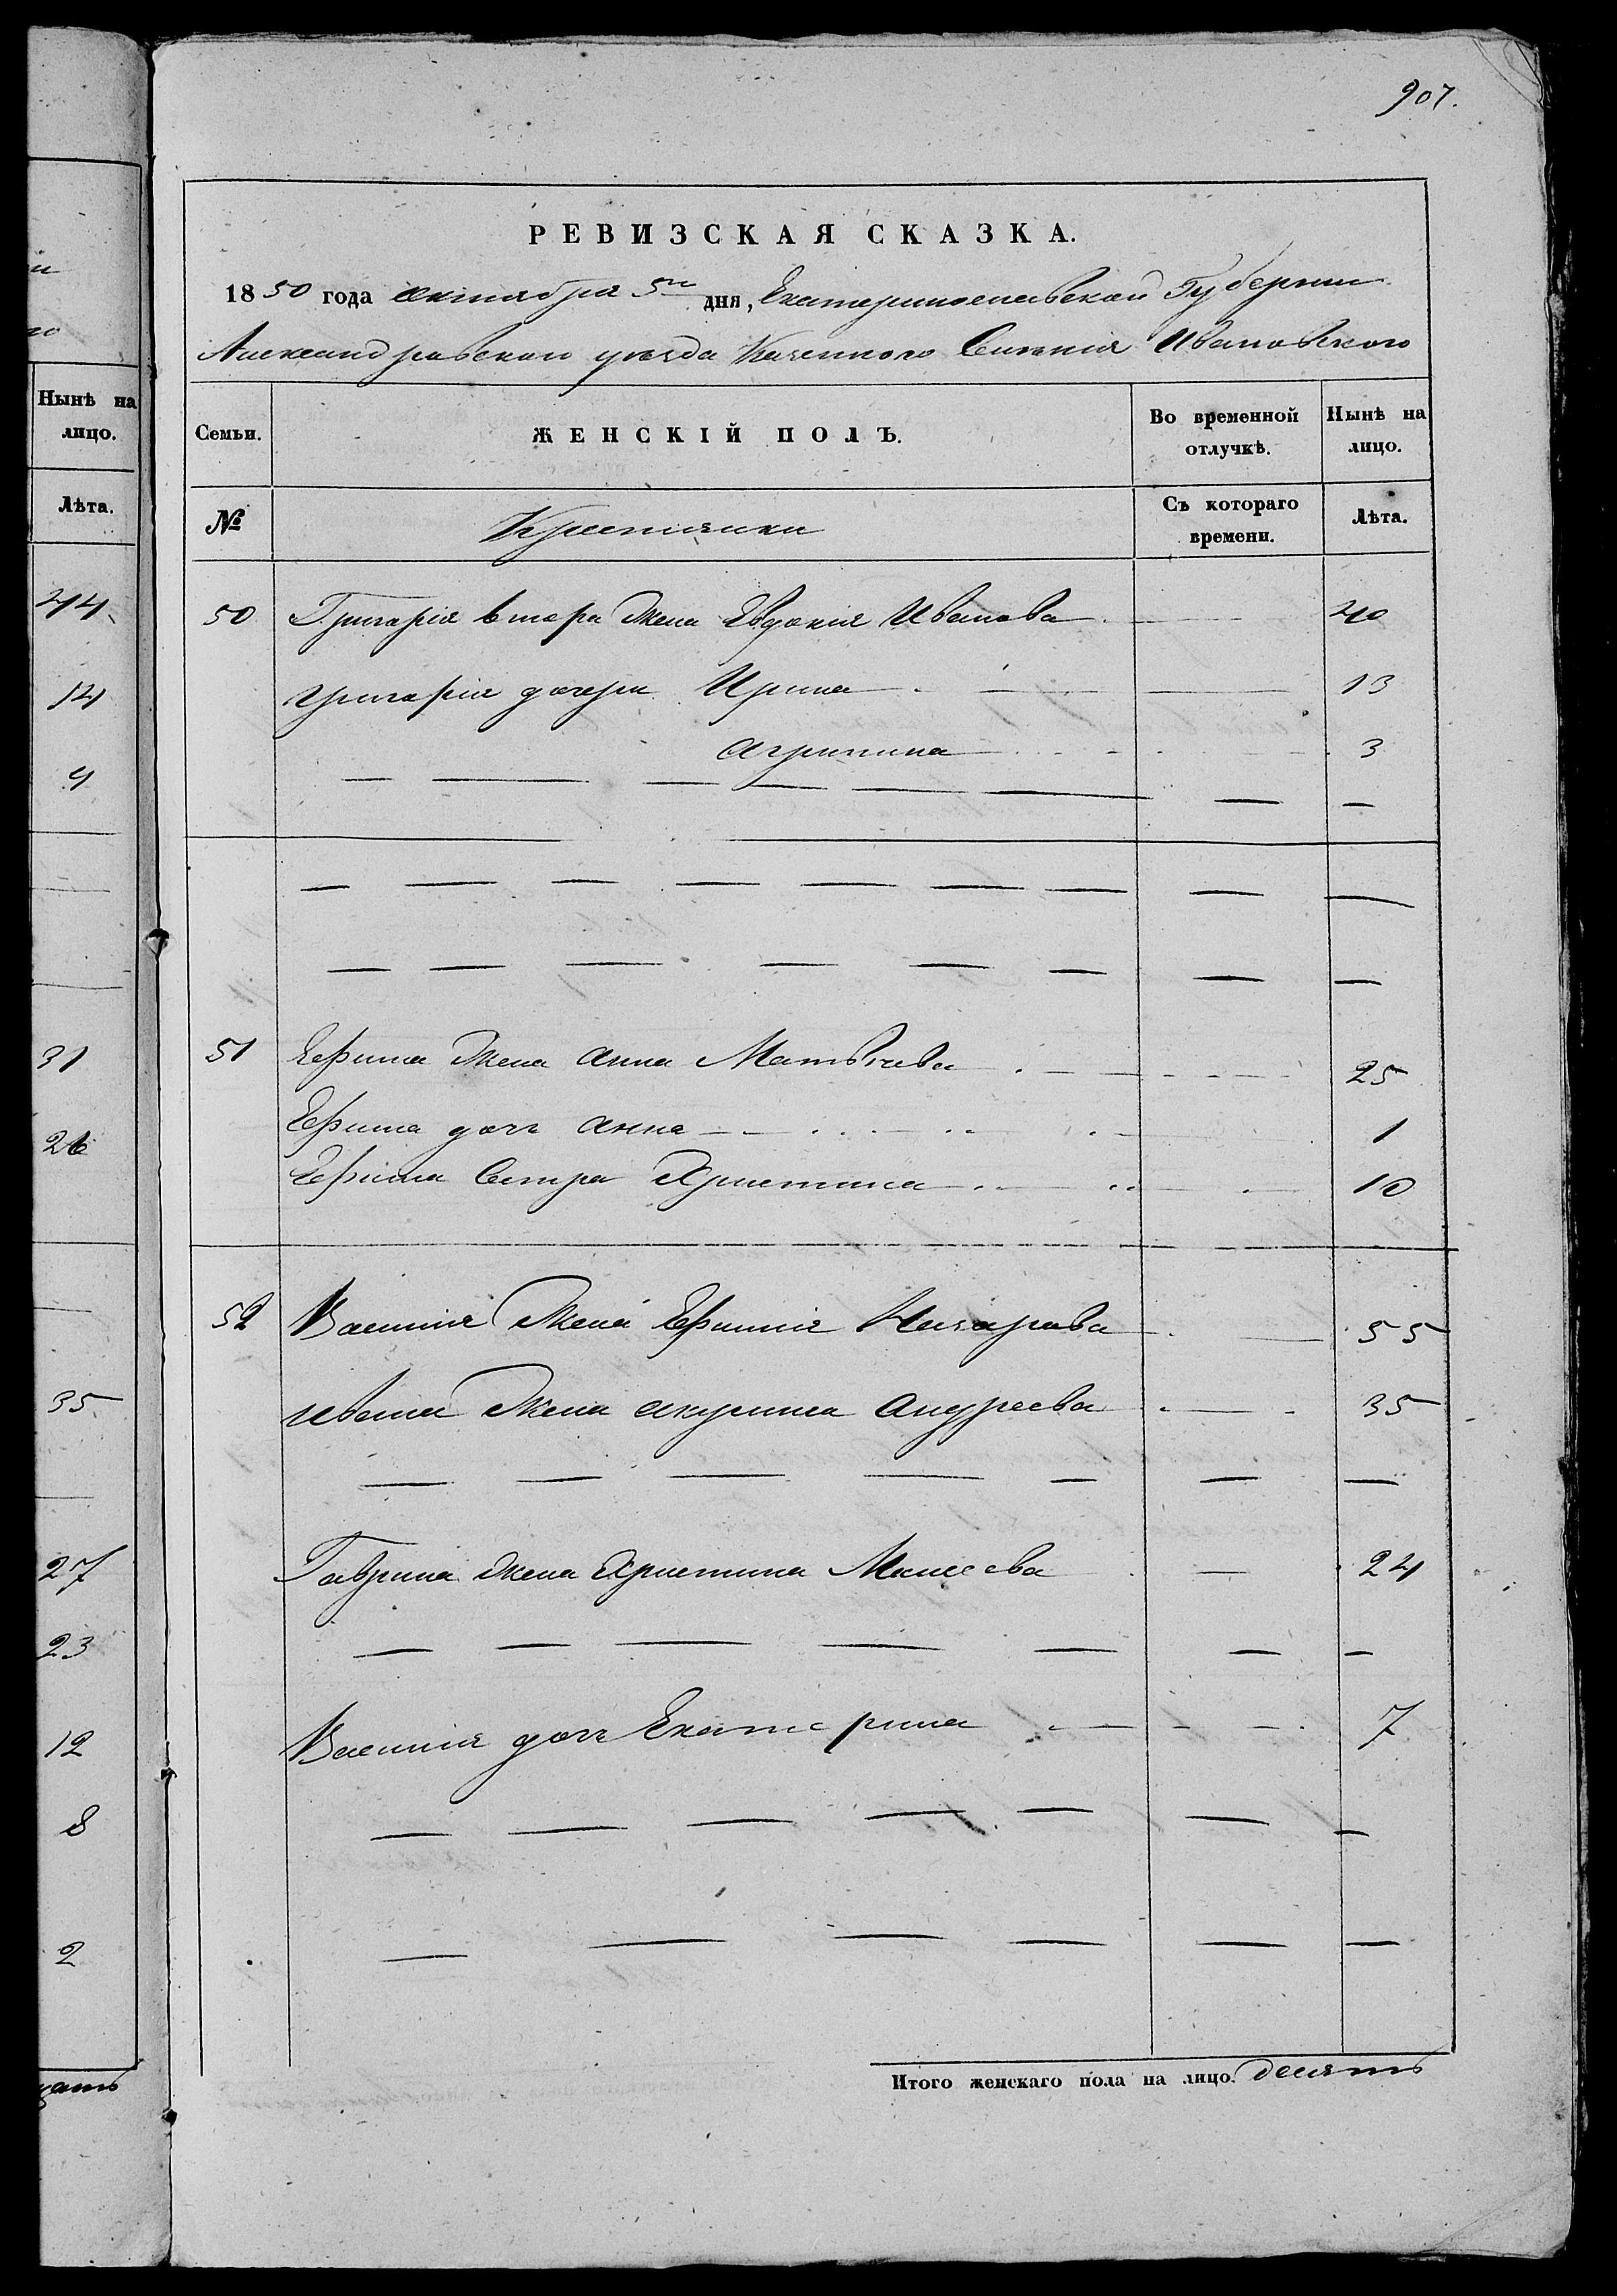 907.
РЕВИЗСКАЯ СКАЗКА.
1850 года октября 5го дня, Екатеринославской Губернии
Александровскаго уезда Казенного Селения Ивановского
Семьи. ЖЕНСКІЙ ПОЛЪ. Во временной отлучкѣ. Нынѣ на лицо.
№ Крестьянки Съ котораго времени. Лѣта.
50 Григорія втора жена Евдокія Иванова 40
Григорія дочери Ирина 13
Агрипина 3
51 Ефима жена Анна Матвѣева 25
Ефима дочь Анна 1
Ефима Сестра Христина 10
52 Василия Жена Ефимия Назарова 55
Ивана Жена Акулина Андреева 35
Гаврила жена Христина Моисеева 24
Василия дочь Екатерина 7
Итого женскаго пола на лицо. десять
Нынѣ на
лицо.
Лѣта.
44
14
9
31
26
35
27
23
12
8
2